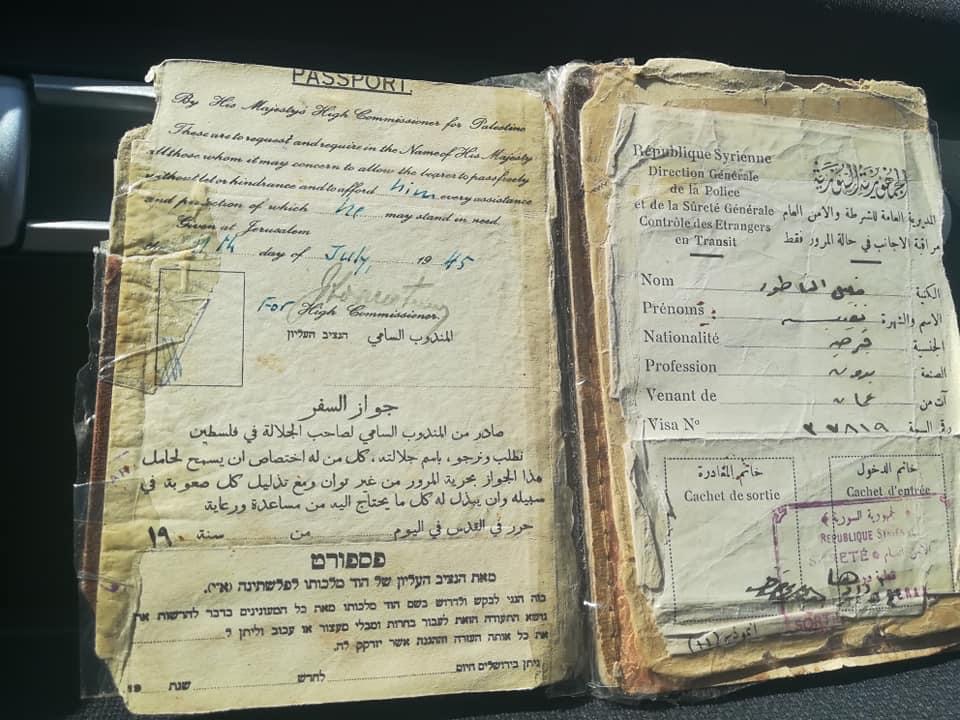 PASSPORT.
By His Majesty's High Commissioner for Palestine
These are to request and require in the Name of His Majesty
all those whom it may concern to allow the bearer to pass freely
without let or hindrance and to afford him every assistance
and protection of which he may stand in need.
Given at Jerusalem
day of July, 1945
For High Commissioner.
המנציב העליון المندوب السامي
جواز السفر
صادر من المندوب السامي لصاحب الجلالة في فلسطين
نطلب ونرجو، باسم جلالته، كل من له اختصاص ان يسمح لحامل
هذا الجواز بحرية المرور من غير توان ومع تذليل كل صعوبة في
سبيله وان يبذل له كل ما يحتاج اليه من مساعدة ورعاية
حرر في القدس في اليوم من سنة ١٩
פספורט
מאת הנציב העליון של הוד מלכותו לפלשתינה (א״י).
הנני לבקש ולדרוש בשם הוד מלכותו מאת כל המעונינים בדבר להרשות את
נושא התעודה הזאת לעבור בחרות ומבלי מעצור או עכוב וליתן ל
את כל אותה העזרה וההגנה אשר יזדקק לה.
ניתן בירושלים היום לחדש שנת 19
République Syrienne
Direction Générale
de la Police
et de la Sûreté Générale
Contrôle des Etrangers
en Transit
الجمهورية السورية
المديرية العامة للشرطة والامن العام
مراقبة الاجانب في حالة المرور فقط
Nom الكنية
Prénoms نجيب الاسم والشهرة
Nationalité الجنسية
Profession بدون الصنعة
Venant de عمان آت من
Visa Nº ٢٧٨١٩ رقم السمة
خاتم المغادرة
Cachet de sortie
خاتم الدخول
Cachet d'entrée
جمهورية السورية
REPUBLIQUE SYRIENNE
SURETE
SORTIE
(١١)